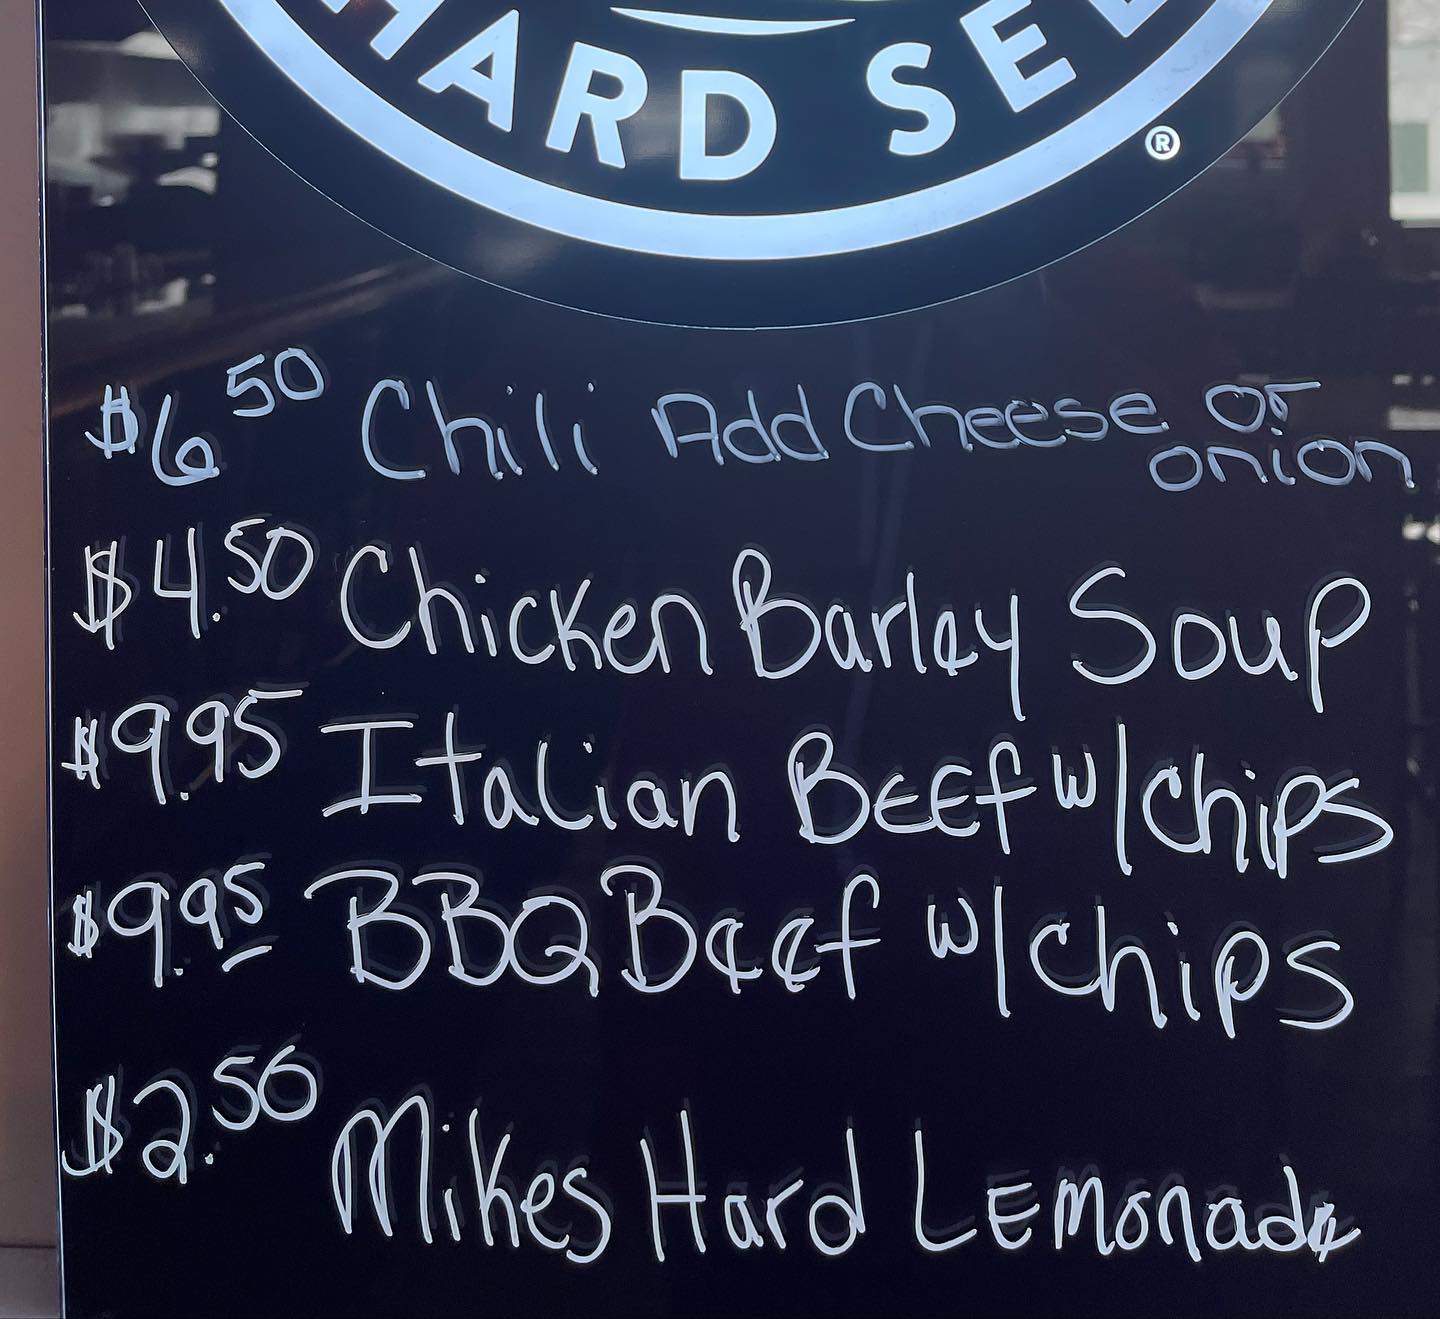 HARD SEL
®
$6.50 Chili Add Cheese or
onion
$4.50 Chicken Barley Soup
$9.95 Italian BEEf w/chips
$9.95 BBQ Beef w/chips
$2.50 Mikes Hard LEmonade